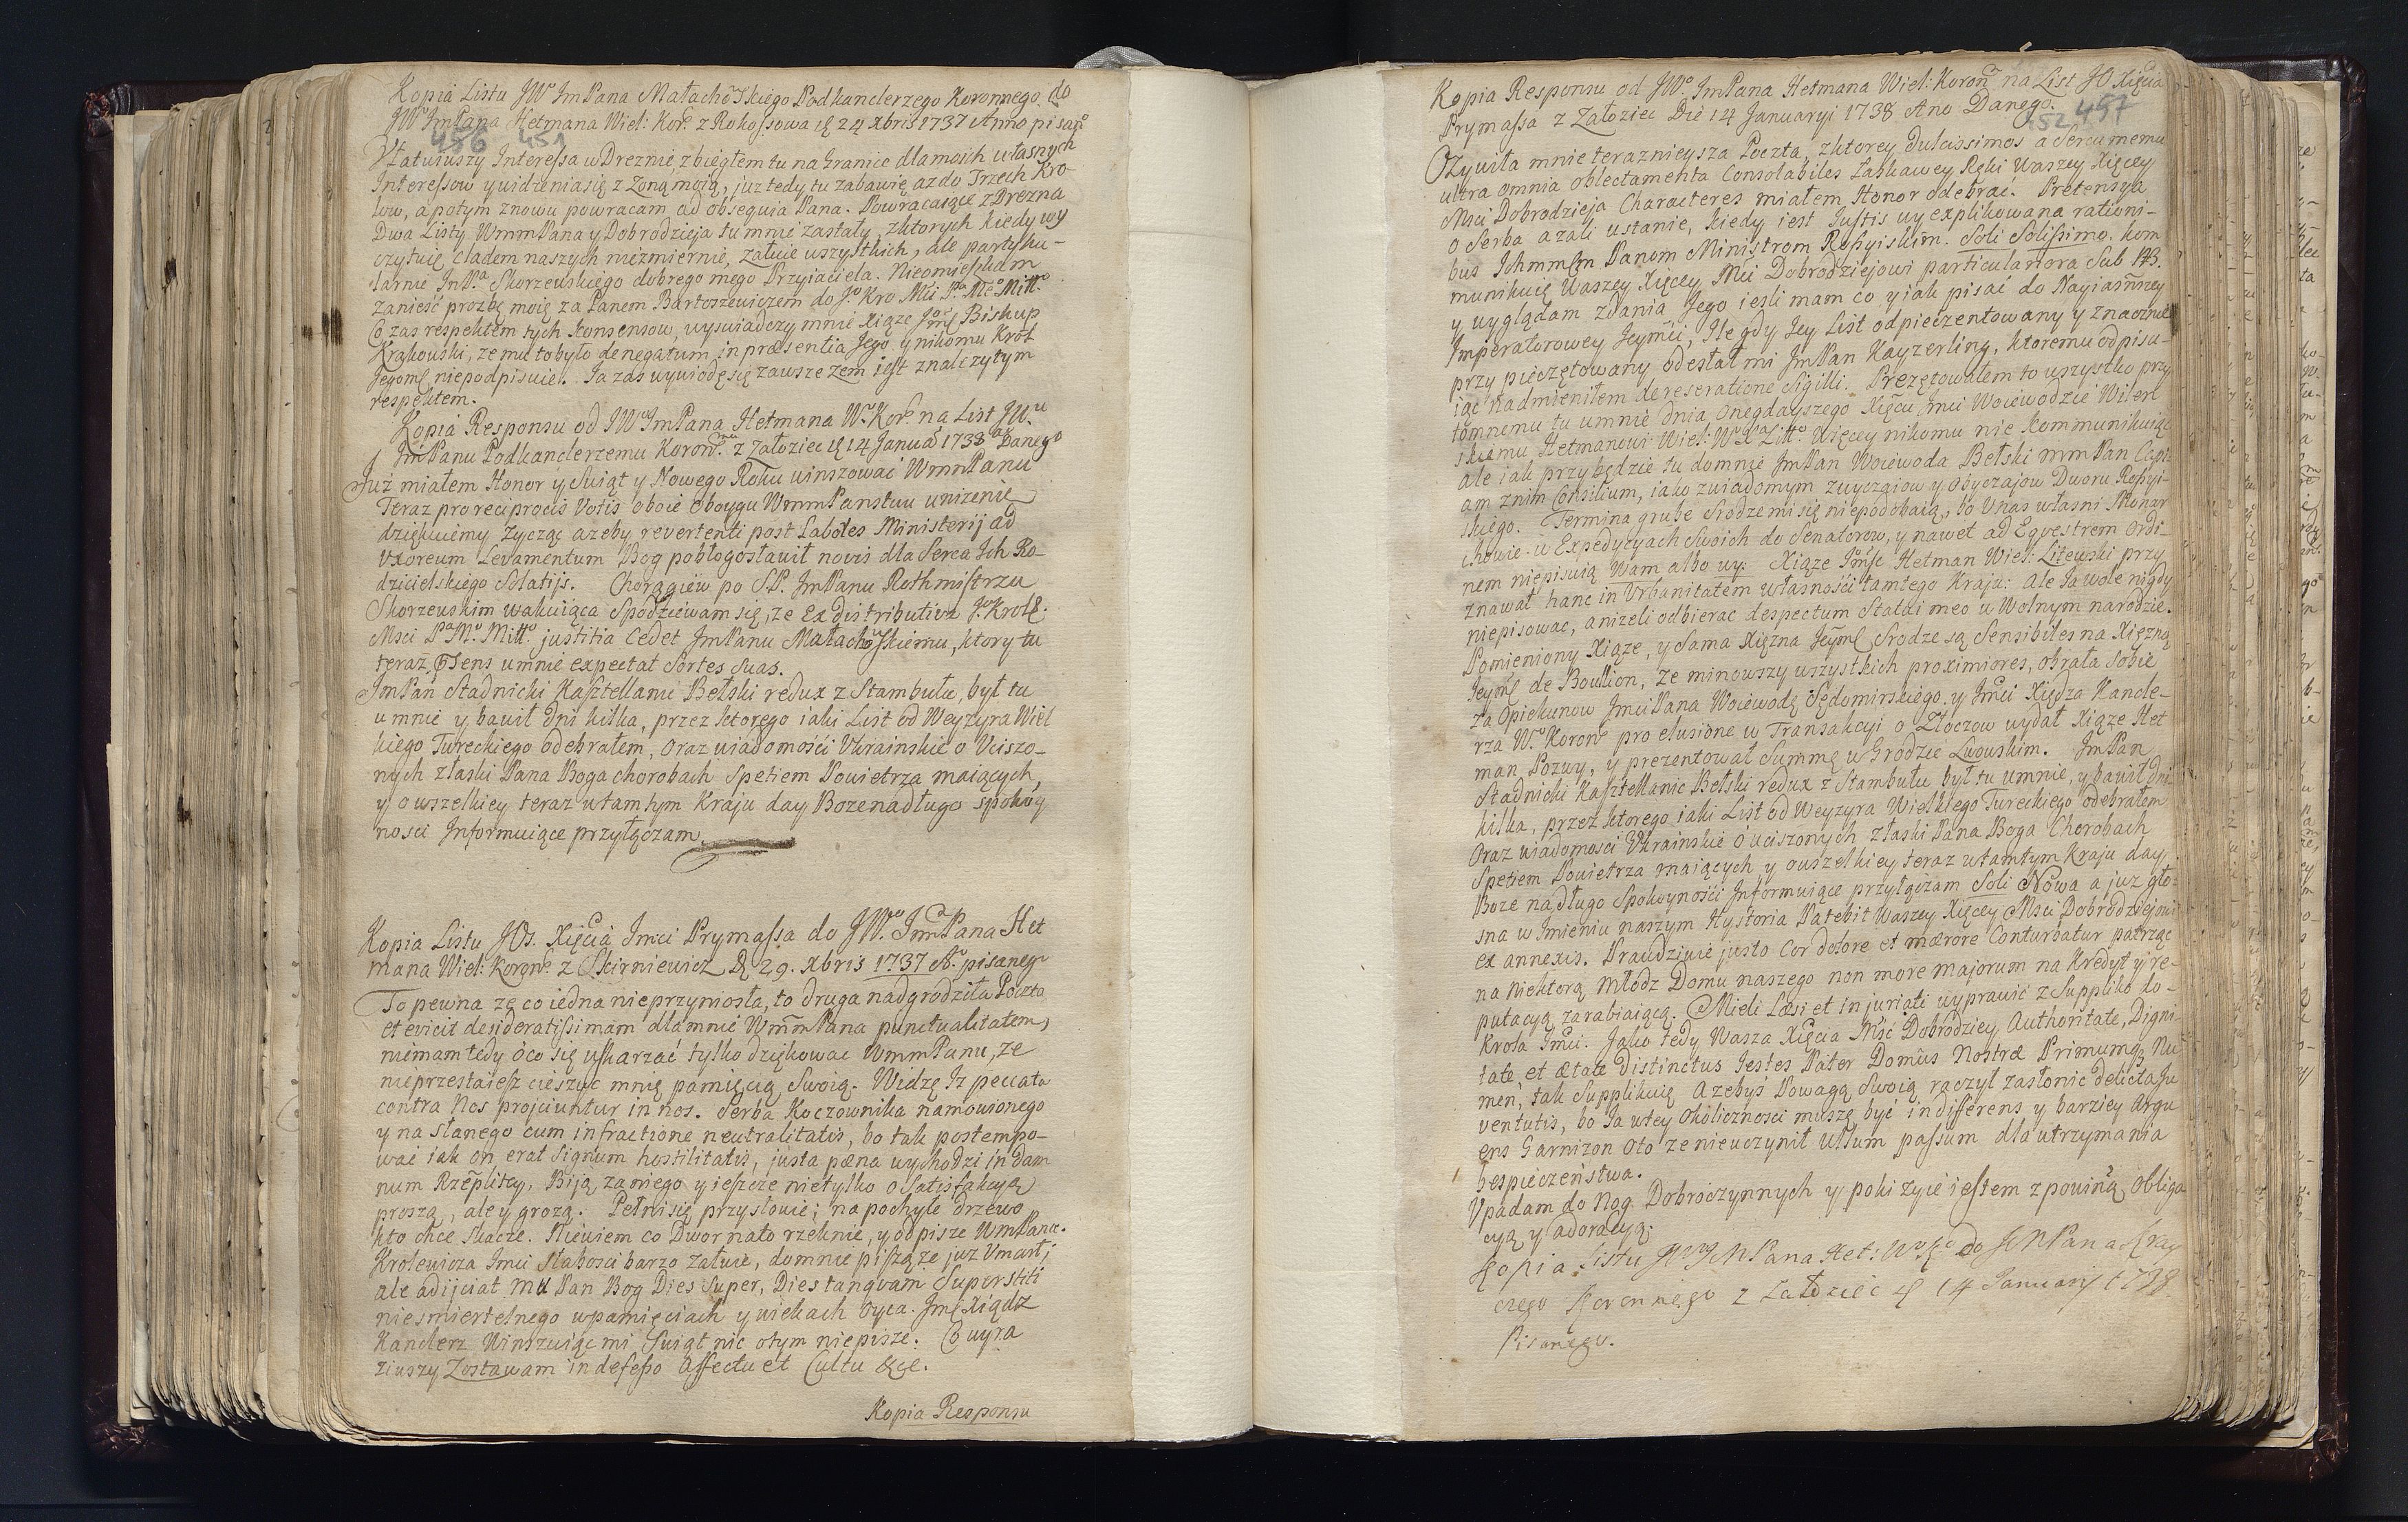 Kopia Listu JWo ImPana Małachowskiego Podkanclerzego Koronnego do
JWo ImPana Hetmana Wiel: Kor. z Rokossowa 24 Xbris 1737 Anno pisan
456 451
Interessa w Dreznie, zbiegłem tu na Granice dla moich własnych
Interessow y widzenia się z Zoną moią, juz tedy tu zabawię az do Trzech Kro-
low, a potym znowu powracam ad obsequia Pana. Powracaiąc z Drezna
Dwa Listy WmmPana y Dobrodzieja tu mnie zastały, z ktorych kiedy wy
czytuię cladem naszych niezmiernie, załuię wszystkich, ale partyku-
larnie Skorzewskiego dobrego mego Przyiaciela. Nieomieszkam
zanieść prozbę moię za Panem Bartoszewiczem do Jo Kro Mci
Co zas respektem tych konsensow, wyswiadczy mnie Xiąze Biskup
Krakowski, ze mu to było denegatum in praesentia Jego y nikomu Krol
niepodpisuie. Ja zas wywiodę się zawsze zem iest znalezytym
respektem.
Kopia Responsu od JWo ImPana Hetmana W. Kor. na List JW.
ImPanu Podkanclerzemu Koron. z Załoziec 14 Janua 1738 Danego
Już miałem Honor y Swiąt y Nowego Roku winszować WmmPanu
Teraz pro reciprocis Votis oboie oboygu WmmPanstwu unizenie
dziękuiemy zycząc azeby revertenti post Labores Ministerij ad
Uxoreum Levamentum Bog pobłogosławił novis dla Serca Ich Ro-
dzicielskiego Solatijs. Chorągiew po S.P. ImPanu Rothmistrzu
Skorzewskim wakuiąca Spodziewam się, ze Ex distributiva J. Krole.
Msci justitia cedet ImPanu Małachowskiemu, ktory tu
teraz Psens umnie expectat Sortes Suas.
ImPan Stadnicki Kasztellanic Bełski redux z Stambułu, był tu
umnie y bawił dni kilka, przez ktorego iaki List od Weyzyra Wiel
kiego Tureckiego odebrałem, oraz wiadomości Ukrainskie o Uciszo-
nych z łaski Pana Boga chorobach Spetiem Powietrza maiących,
y o wszelkiey teraz w tamtym Kraju day Boze nadługo spokoy
nosci Informuiące przyłączam.
Kopia Listu JOs. Xięcia Imci Prymassa do JWo ImPana Het
mana Wiel: Koron. z Skierniewicz 29. Xbris 1737 Ao pisaneg
To pewna ze co iedna nieprzyniosła, to druga nadgrodziła Poczta
et evicit desideratissimam dla mnie WmmPana punctualitatem,
niemam tedy o co się uskarzać tylko dziękować WmmPanu, ze
nieprzestaiesz cieszyc mnię pamięcią Swoią. Widzę Iz peccata
contra Nos projiciuntur in nos. Serba Koczownika namowionego
y nasłanego cum infractione neutralitatis, bo tak postempo-
wać iak on erat Signum hostilitatis, justa paena wychodzi in dam
num Rzeplitey. Biją za niego y ieszcze nietylko o Satisfakcyą
proszą, ale y grozą. Pełni się przysłowie; na pochyłe drzewo
kto chce Skacze. Niewiem co Dwor na to rzeknie, y odpisze WmPanu.
Krolewica Imci słabosci barzo załuię, do mnie piszą ze juz Umarł;
ale adijciat mu Pan Bog Dies Super, Dies tanqvam Superstiti
niesmiertelnego w pamięciach y wiekach oyca. Xiądz
Kanclerz Winszuiąc mi Swiąt nic otym niepisze. Co wyra
ziwszy Zostawam indefesso Affectu et Cultu &ce.
Kopia Responsu
Kopia Responsu od JWo ImPana Hetmana Wiel: Koron na List JO Xięcia
Prymassa z Załoziec Die 14 Januaryi 1738 Ano Danego.
452 457
Ozywiła mnie teraznieysza Poczta, z ktorey Dulcissimos a Sercu memu
ultra omnia oblectamenta Consolabiles Łaskawey Ręki Waszey Xięcey
Msci Dobrodzieja Characteres miałem Honor odebrać. Pretensya
o Serba azali ustanie, kiedy iest Justis wyexplikowana rationi-
bus Panom Ministrom Rossyiskim. Soli Solissimo. kom
munikuię Waszey Xięcey Mci Dobrodziejowi particulariora Sub
y wyglądam zdania Jego iesli mam co y iak pisać do Nayiasnszey
Imperatorowey Jeymci, Ile gdy Jey List odpieczentowany y znacznie
przypieczętowany odesłał mi ImPan Kayzerling, ktoremu odpisu-
iąc nadmieniłem de reseratione Sigilli. Prezętowałem to wszystko przy
tomnemu tu umnie Dnia onegdayszego Xięciu Imci Woiewodzie Wilen
skiemu Hetmanowi Wiel: Więcey nikomu nie kommunikuiąc
ale iak przybędzie tu do mnie ImPan Woiewoda Bełski mmPan Capi
am znim Consilium, iako zwiadomym zwyczaiow y obyczajow Dworu Rossyi-
skiego. Termina grube Srodze mi się niepodobaią, bo Unas własni Monar
chowie w Expedycyach Swoich do Senatorow, y nawet ad Eqvestrem ordi-
nem niepisuią Wam albo wy: Xiąze Hetman Wiel: Litewski przy
znawał hanc in Urbanitatem własności tamtego Kraju: ale Ja wole nigdy
niepisować, anizeli odbierac despectum Statui meo w Wolnym narodzie.
Pomieniony Xiąze, y Sama Xięzna Srodze są Sensibiles na Xięznę
de Boullion, ze minowszy wszystkich proximiores, obrała Sobie
za Opiekunow ImciPana Woiewodę Sędomirskiego y Imci Xiędza Kancle-
rza W. Koron pro elusione w Transakcyi o Złoczow wydał Xiąze Het
man Pozwy, y prezentował Summę w Grodzie Lwowskim. ImPan
Stadnicki Kasztellanic Bełski redux z Stambułu był tu umnie, y bawił dni
kilka, przez ktorego iaki List od Weyzyra Wielkiego Tureckiego odebrałem
Oraz wiadomosci Ukrainskie o uciszonych złaski Pana Boga Chorobach
Spetiem Powietrza maiących y o wszelkiey teraz w tamtym Kraju day
Boze nadługo Spokoyności Informuiące przyłączam Soli Nowa a juz gło-
sna w Imieniu naszym Hystoria Patebit Waszey Xięcey Msci Dobrodziejowi
ex annexis. Prawdziwie justo cor dolore et maerore Conturbatur patrząc
na niektorą Młodz Domu naszego non more majorum na Kredyt y re-
putacyą zarabiaiącą. Mieli Laesi et injuriati wyprawić z Suppliką do
Krola Imci. Jako tedy Wasza Xięcia Mść Dobrodziey Authoritate, Digni
tate, et aetate Distinctus Jestes Pater Domus Nostrae Primumq Nu
men, tak Supplikuię Azebyś Powagą Swoią raczył zasłonic delicta Ju
ventutis, bo Ja w tey Okolicznosci muszę być indifferens y barziey Argu
ens Garnizon Oto ze nieuczynił ullum passum dla utrzymania
bespieczeństwa.
Upadam do Nog Dobroczynnych y poki zyię iestem z powiną Obliga
cyą y adoracyą.
Kopia Listu JWo ImPana Het: do
czego Koronnego z Załoziec 14 January 1738
Pisanego.